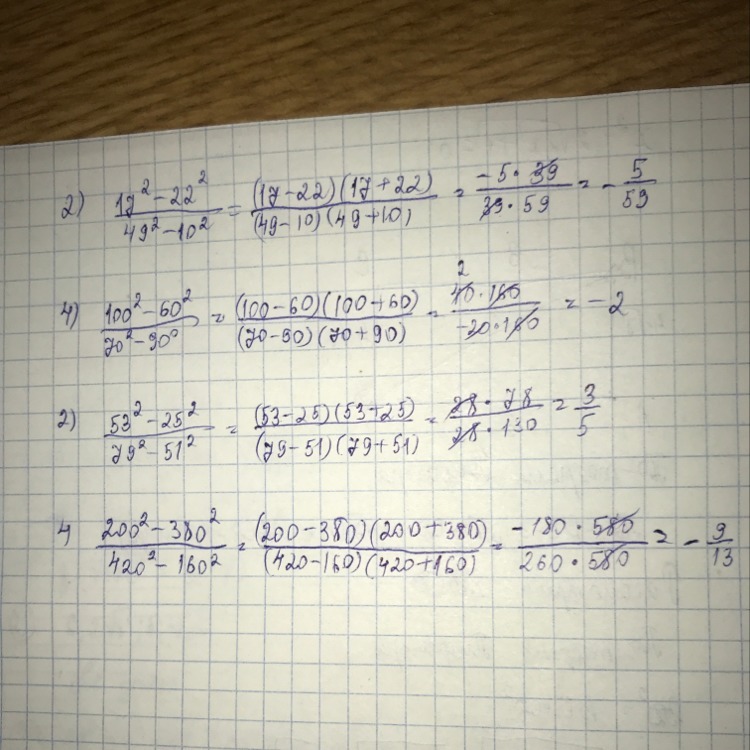 2) (17² - 22²)/(49² - 10²) = ((17-22)(17+22))/((49-10)(49+10)) = (-5·39)/(39·59) = -5/59
4) (100² - 60²)/(70² - 90²) = ((100-60)(100+60))/((70-90)(70+90)) = 2 (40·160)/(-20·160) = -2
2) (53² - 25²)/(79² - 51²) = ((53-25)(53+25))/((79-51)(79+51)) = (28·78)/(28·130) = 3/5
4 (200² - 380²)/(420² - 160²) = ((200-380)(200+380))/((420-160)(420+160)) = (-180·580)/(260·580) = -9/13